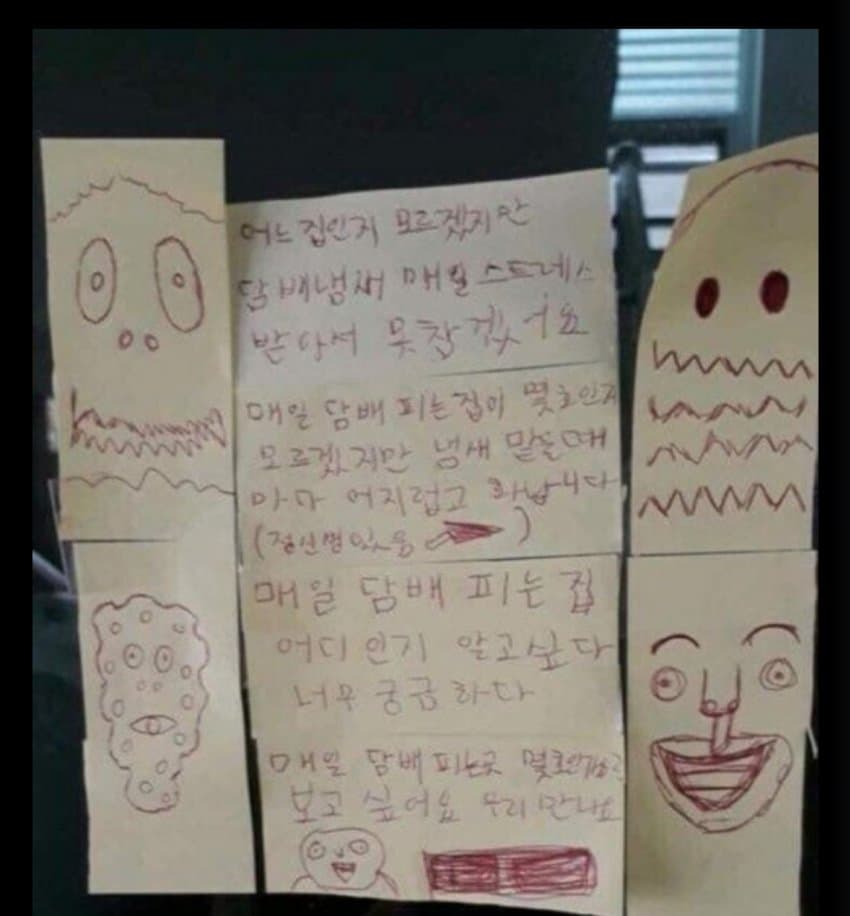 어느집인지 모르겠지만
담배냄새 매일 스트레스
받아서 못참겠어요
매일 담배 피는집이 몇호인지
모르겠지만 냄새 맡을때
마다 어지럽고 화납니다
(정신병있음 )
매일 담배 피는 집
어디인지 알고싶다
너무 궁금하다
매일 담배 피는곳
보고 싶어요 우리 만나요